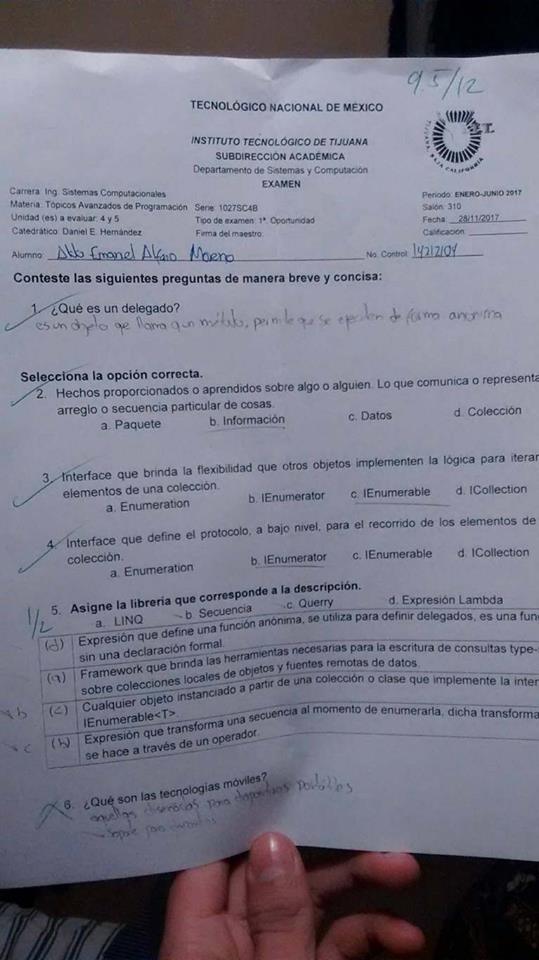 9.5/12
TECNOLÓGICO NACIONAL DE MÉXICO
INSTITUTO TECNOLÓGICO DE TIJUANA
SUBDIRECCIÓN ACADÉMICA
Departamento de Sistemas y Computación
EXAMEN
TIJUANA, BAJA CALIFORNIA
Carrera: Ing. Sistemas Computacionales Periodo: ENERO-JUNIO 2017
Materia: Tópicos Avanzados de Programación Serie: 1027SC4B Salón: 310
Unidad (es) a evaluar: 4 y 5 Tipo de examen: 1ª. Oportunidad Fecha: 28/11/2017
Catedrático: Daniel E. Hernández Firma del maestro: Calificación:
Alumno: Aldo Emanel Alfaro Moreno No. Control: 14212104
Conteste las siguientes preguntas de manera breve y concisa:
1. ¿Qué es un delegado?
es un objeto que llama a un método, permite que se ejecuten de forma anonima
Selecciona la opción correcta.
2. Hechos proporcionados o aprendidos sobre algo o alguien. Lo que comunica o representa
arreglo o secuencia particular de cosas.
a. Paquete b. Información c. Datos d. Colección
3. Interface que brinda la flexibilidad que otros objetos implementen la lógica para iterar
elementos de una colección.
a. Enumeration b. IEnumerator c. IEnumerable d. ICollection
4. Interface que define el protocolo, a bajo nivel, para el recorrido de los elementos de
colección.
a. Enumeration b. IEnumerator c. IEnumerable d. ICollection
1/2 5. Asigne la librería que corresponde a la descripción.
a. LINQ b. Secuencia c. Querry d. Expresión Lambda
(d) Expresión que define una función anónima, se utiliza para definir delegados, es una fun
sin una declaración formal.
(a) Framework que brinda las herramientas necesarias para la escritura de consultas type-
sobre colecciones locales de objetos y fuentes remotas de datos.
b (c) Cualquier objeto instanciado a partir de una colección o clase que implemente la inter
IEnumerable<T>.
c (b) Expresión que transforma una secuencia al momento de enumerarla, dicha transforma
se hace a través de un operador.
6. ¿Qué son las tecnologías móviles?
aquellas diseñadas para dispositivos portátiles